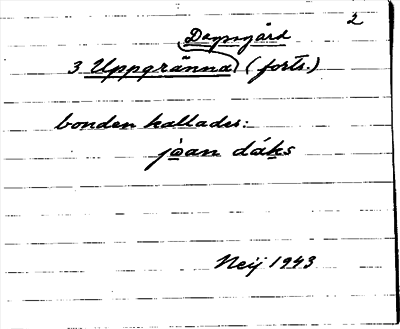 2
Dagsgård
3 Uppgränna (forts.)
bonden kallades:
jòan dáks
Neij 1943